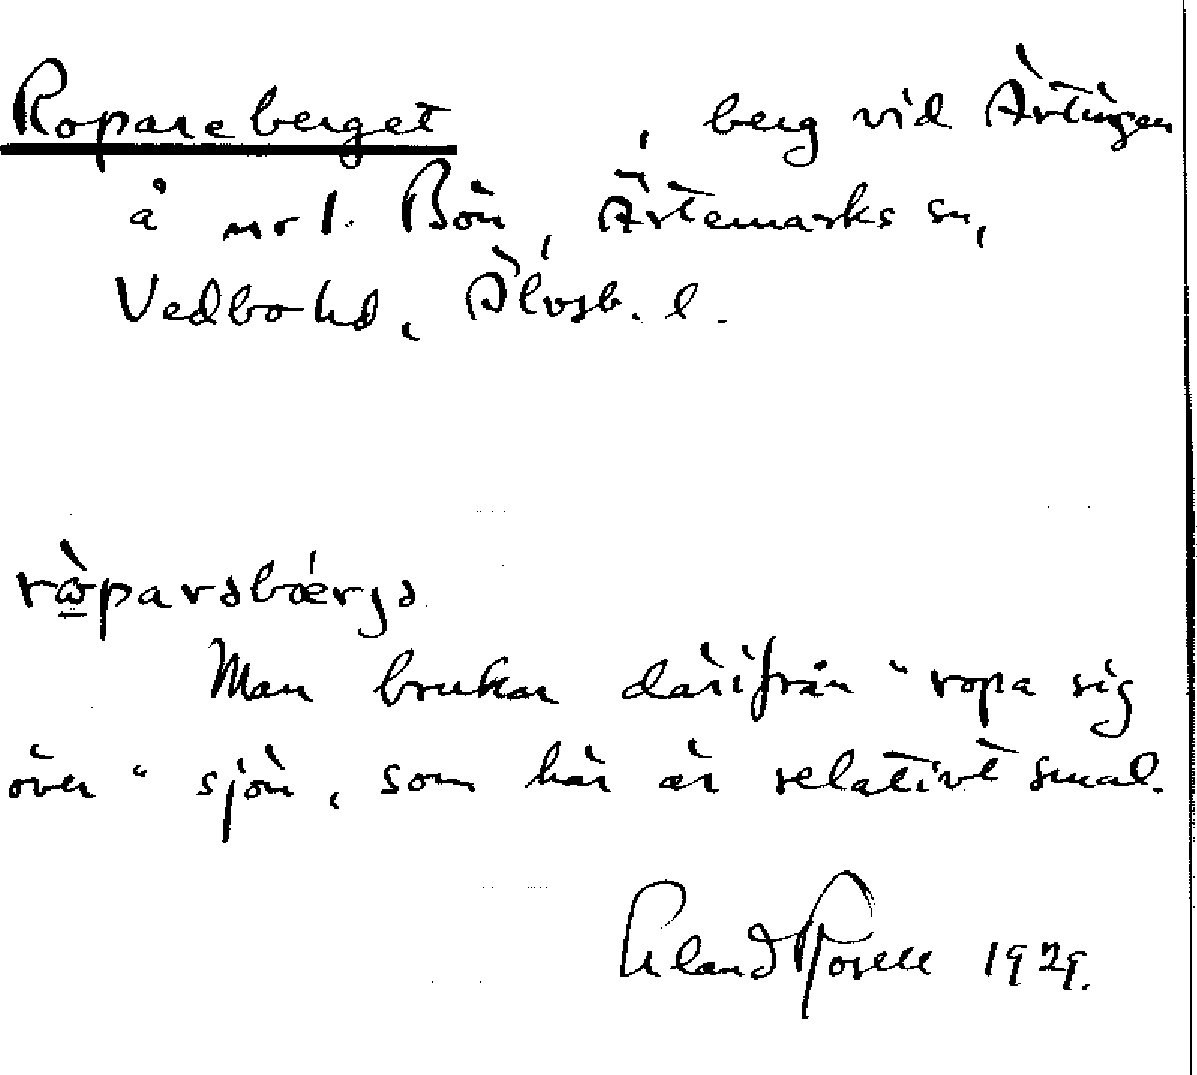 Ropareberget, berg vid Ärtingen
å nr 1. Bön, Ärtemarks sn,
Vedbo hd, Älvsb. l.
rò̲parəbǽrjə
Man brukar därifrån "ropa sig
över" sjön, som här är relativt smal.
Erland Rosell 1929.